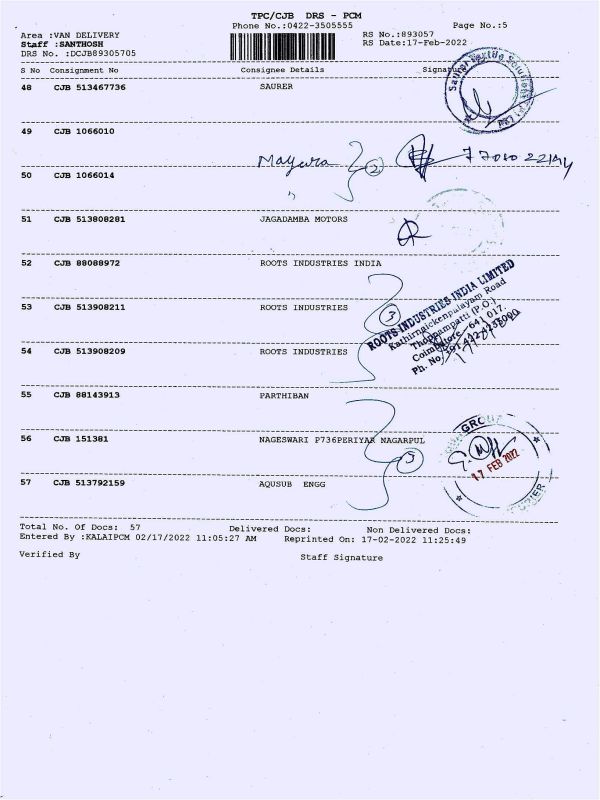 TPC/CJB DRS - PCM
Phone No.:0422-3505555 Page No.:5
Area :VAN DELIVERY RS No.:893057
Staff :SANTHOSH RS Date:17-Feb-2022
DRS No. :DCJB89305705
S No Consignment No Consignee Details Signature
48 CJB 513467736 SAURER
49 CJB 1066010
Mayura 2
50 CJB 1066014
51 CJB 513808281 JAGADAMBA MOTORS
52 CJB 88088972 ROOTS INDUSTRIES INDIA
53 CJB 513908211 ROOTS INDUSTRIES 3
ROOTS INDUSTRIES INDIA LIMITED
Kathirnaickenpalayam Road
Thoppampatti (P.O.)
Coimbatore - 641 017.
Ph. No
54 CJB 513908209 ROOTS INDUSTRIES
55 CJB 88143913 PARTHIBAN
56 CJB 151381 NAGESWARI P736PERIYAR NAGARPUL
3
GROUP
17 FEB 2022
57 CJB 513792159 AQUSUB ENGG
Total No. Of Docs: 57 Delivered Docs: Non Delivered Docs:
Entered By :KALAIPCM 02/17/2022 11:05:27 AM Reprinted On: 17-02-2022 11:25:49
Verified By Staff Signature